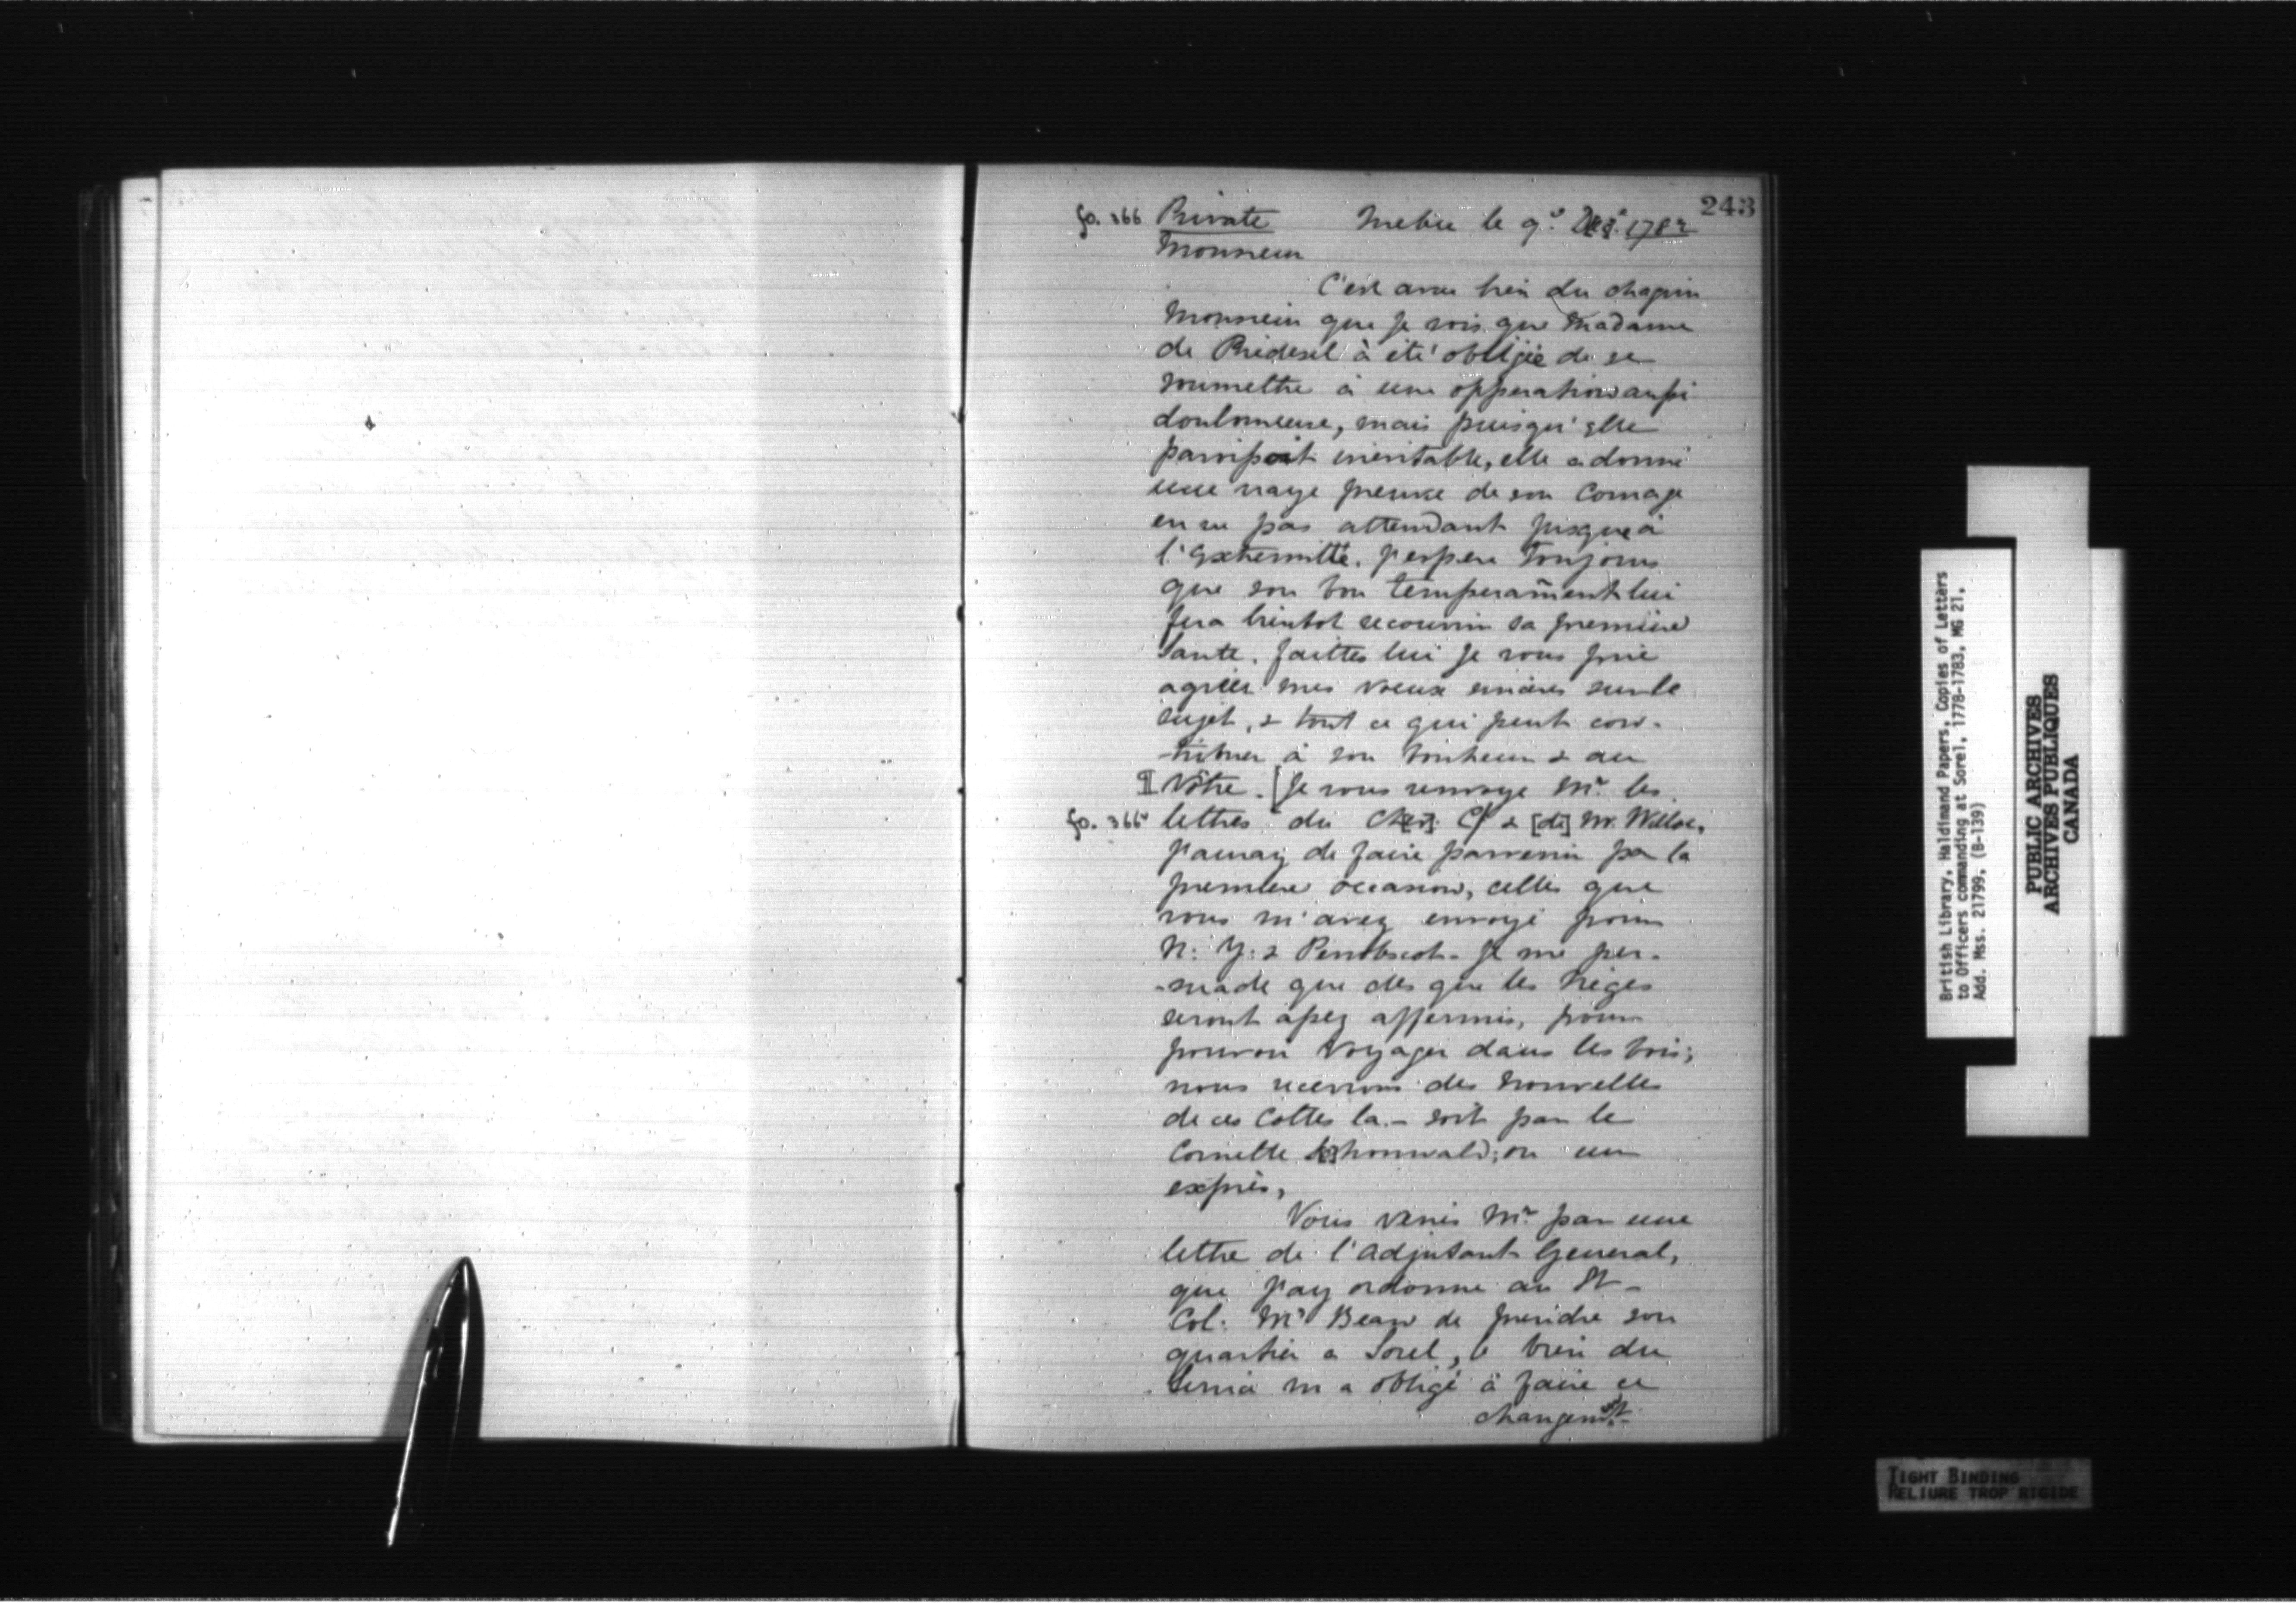 243
fo. 366 Private Quebec le 9.e Dec.r 1782
Monsieur
C'est avec bien du chagrin
Monsieur que je vois que Madame
de Riedesel à été obligée de se
soumettre à une opperation aussi
douloureuse, mais puisqu'elle
paroissoit inévitable, elle a donné
une vraye preuve de son Courage
en ne pas attendant jusque à
l'Extremitté. J'espere Toujours
que son bon temperament lui
fera bientot recouvrir sa première
Santé. faittes lui Je vous prie
agréer mes voeux sincères sur le
sujet, & tout ce qui peut con-
-tribuer à son bonheur & au
Vôtre. [Je vous renvoye Mr. les
fo. 366v lettres du Chev. C & [de] Mr. Willoe,
J'auray de faire parvenir par la
premiere occasion, celles que
vous m'avez envoyé pour
N: Y: & Penobscot. Je me per-
-suade que des que les Nèges
seront assez affermis, pour
pouvoir Voyager dans les bois;
nous recevrons des Nouvelles
de ces Cottes la. - soit par le
Cornette Schonwald; ou un
exprès,
Vous verrés Mr. par une
lettre de l'Adjutant General,
que J'ay ordonné au Lt-
Col: Mc Bean de prendre son
quartier a Sorel, le bien du
Service m'a obligé à faire ce
changemt.
British Library, Haldimand Papers, Copies of Letters
to Officers commanding at Sorel, 1778-1783, MG 21,
Add. Mss. 21799, (B-139)
PUBLIC ARCHIVES
ARCHIVES PUBLIQUES
CANADA
TIGHT BINDING
RELIURE TROP RIGIDE